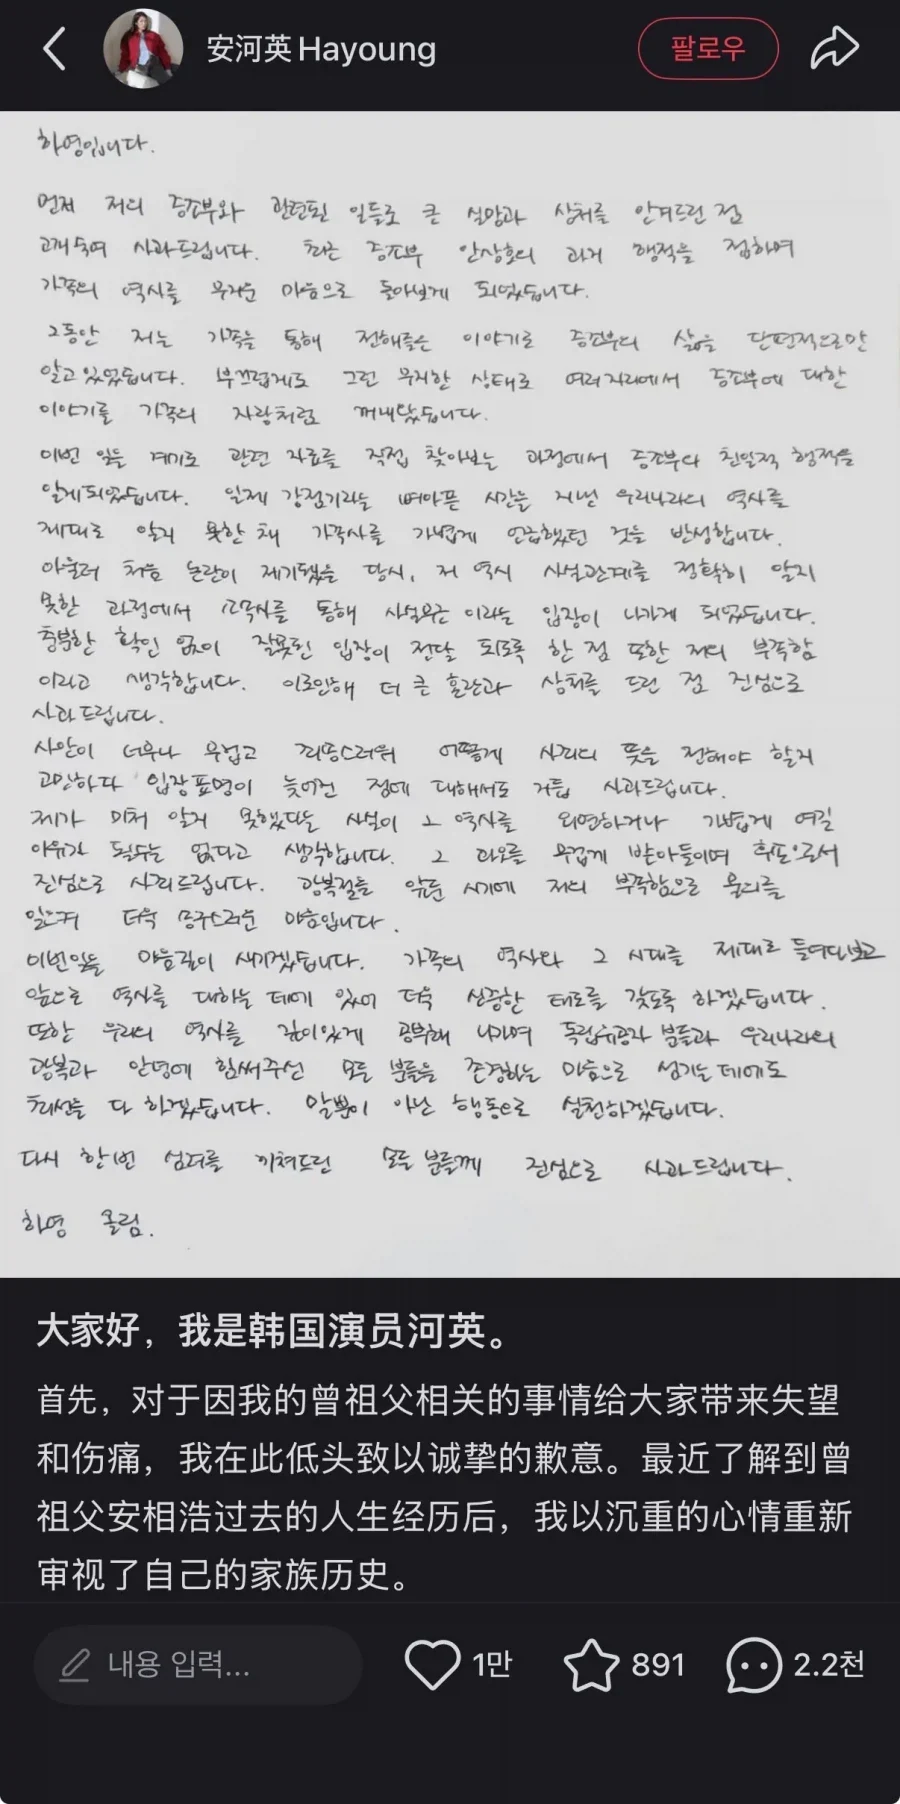 安河英Hayoung
팔로우
하영입니다.
먼저 저의 증조부와 관련된 일들로 큰 실망과 상처를 안겨드린 점
고개숙여 사과드립니다. 최근 증조부 안상호의 과거 행적을 접하며
가족의 역사를 무거운 마음으로 돌아보게 되었습니다.
그동안 저는 가족을 통해 전해들은 이야기로 증조부의 삶을 단편적으로만
알고 있었습니다. 부끄럽게도 그런 무지한 상태로 여러 자리에서 증조부에 대한
이야기를 가족의 자랑처럼 꺼내왔습니다.
이번 일을 계기로 관련 자료를 직접 찾아보는 과정에서 증조부의 친일적 행적을
알게되었습니다. 일제 강점기라는 뼈아픈 시간을 지낸 우리나라의 역사를
제대로 알지 못한 채 가족사를 가볍게 언급했던 것을 반성합니다.
아울러 처음 논란이 제기됐을 당시, 저 역시 사실관계를 정확히 알지
못한 과정에서 소속사를 통해 사실무근이라는 입장이 나가게 되었습니다.
충분한 확인 없이 잘못된 입장이 전달 되도록 한 점 또한 저의 부족함
이라고 생각합니다. 이로인해 더 큰 혼란과 상처를 드린 점 진심으로
사과드립니다.
사안이 너무나 무겁고 죄송스러워 어떻게 사죄의 뜻을 전해야 할지
고민하다 입장표명이 늦어진 점에 대해서도 거듭 사과드립니다.
제가 미처 알지 못했다는 사실이 그 역사를 외면하거나 가볍게 여길
이유가 될수는 없다고 생각합니다. 그 과오를 무겁게 받아들이며 후손으로서
진심으로 사죄드립니다. 광복절을 앞둔 시기에 저의 부족함으로 물의를
일으켜 더욱 송구스러운 마음입니다.
이번일을 마음깊이 새기겠습니다. 가족의 역사와 그 시대를 제대로 들여다보고
앞으로 역사를 대하는 데에 있어 더욱 신중한 태도를 갖도록 하겠습니다.
또한 우리의 역사를 깊이있게 공부해 나가며 독립유공자 분들과 우리나라의
광복과 안녕에 힘써주신 모든 분들을 존경하는 마음으로 섬기는데에도
최선을 다 하겠습니다. 말뿐이 아닌 행동으로 실천하겠습니다.
다시 한번 심려를 끼쳐드린 모든 분들께 진심으로 사과드립니다.
하영 올림.
大家好，我是韩国演员河英。
首先，对于因我的曾祖父相关的事情给大家带来失望
和伤痛，我在此低头致以诚挚的歉意。最近了解到曾
祖父安相浩过去的人生经历后，我以沉重的心情重新
审视了自己的家族历史。
내용 입력...
1만
891
2.2천